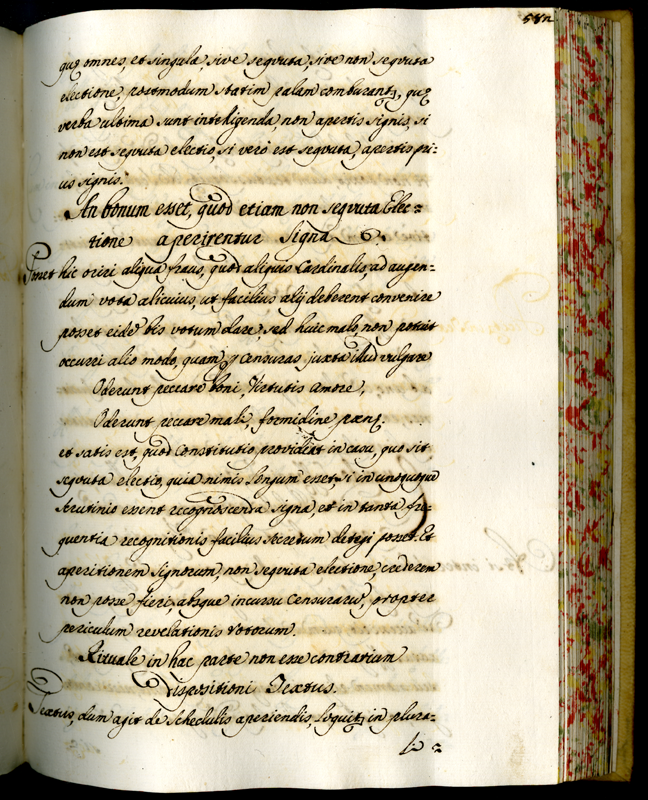 582
quę omnes, et singula, sive seqvuta, sive non seqvuta
electione, postmodum statim palam comburantʒ, quę
verba ultima sunt intelligenda, non apertis signis, si
non est seqvuta electio, si verò est seqvuta, apertis pri:
us signis.
An bonum esset, quòd etiam non seqvuta Elec:
tione aperirentur Signa
Posset hic oriri aliqua fraus, quòd aliquis Cardinalis, ad augen:
dum vota alicuius, ut facilius alij deberent convenire
posset eidē bis votum dare, sed huic malo, non potuit
occurri alio modo, quam p Censuras juxta illud vulgare
Oderunt peccare boni, Virtutis amore,
Oderunt peccare mali, formidine pœnę.
et satis est, quòd Constitutio provideat in casu, quo sit
seqvuta electio, quia nimis longum esset, si in unoquoque
Scrutinio essent recognoscenda signa, et in tanta fre:
quentia recognitionis facilius secretum detegi posset. Et
aperitionem signorum, non seqvuta electione, crederem
non posse fieri, absque incursu Censurarū, propter
periculum revelationis votorum.
Rituale in hac parte non esse contrarium
Dispositioni Textus.
Textus, dum agit de Schedulis aperiendis, loquitʒ in plura:
li :